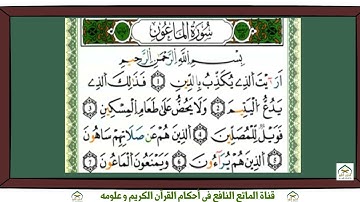 سُورَةُ المَاعُونِ
بِسْمِ اللَّهِ الرَّحْمَنِ الرَّحِيمِ
أَرَءَيْتَ الَّذِي يُكَذِّبُ بِالدِّينِ ١ فَذَٰلِكَ الَّذِي
يَدُعُّ الْيَتِيمَ ٢ وَلَا يَحُضُّ عَلَىٰ طَعَامِ الْمِسْكِينِ ٣
فَوَيْلٌ لِّلْمُصَلِّينَ ٤ الَّذِينَ هُمْ عَن صَلَاتِهِمْ سَاهُونَ
٥ الَّذِينَ هُمْ يُرَاءُونَ ٦ وَيَمْنَعُونَ الْمَاعُونَ ٧
قناة الماتع النافع في أحكام القرآن الكريم وعلومه